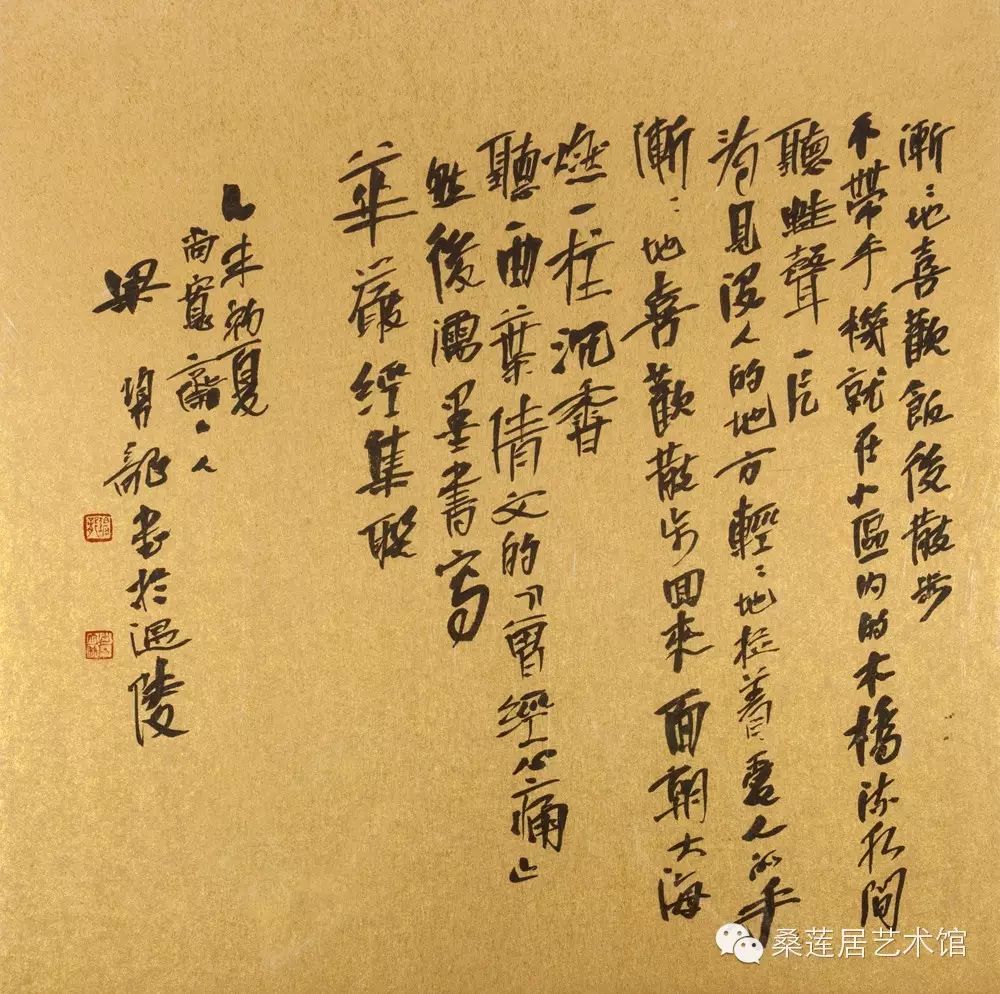 漸〻地喜歡飯後散步
不帶手機就在小區內的木橋流水間
聽蛙聲一片
看見沒人的地方輕〻地挽着愛人的手
漸〻地喜歡散步回來面朝大海
燃一柱沉香
聽一曲葉倩文的「曾經心痛」
然後濡墨書寫
華嚴經集聯
乙未初夏
尚寬齋主人
梁 龍書於溫陵
桑莲居艺术馆